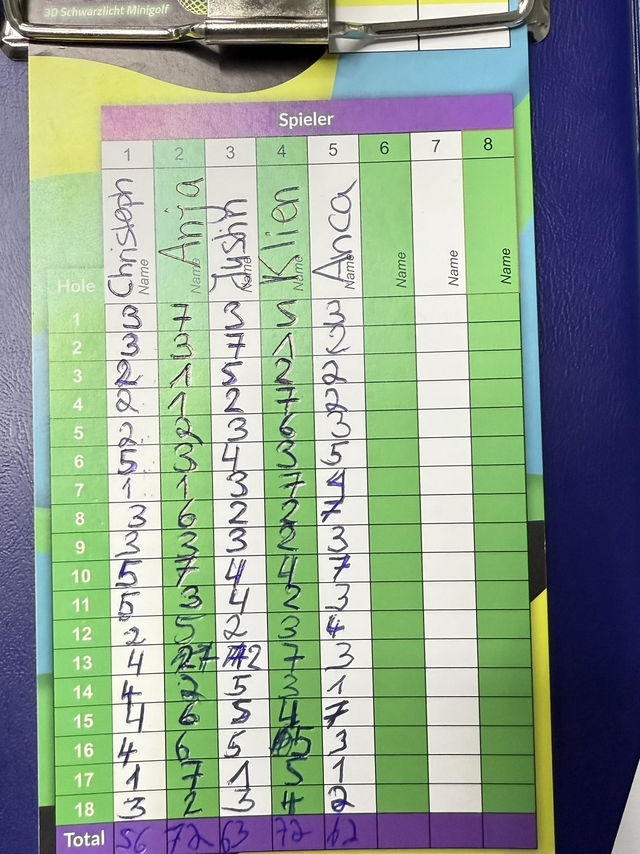 3D Schwarzlicht Minigolf
Spieler
1 2 3 4 5 6 7 8
Christeph Anja Justin Klien Anca
Hole Name Name Name Name Name Name Name Name
1 3 7 3 5 3
2 3 3 7 1 2
3 2 1 5 2 2
4 2 1 2 7 2
5 2 2 3 6 3
6 5 3 4 3 5
7 1 1 3 7 4
8 3 6 2 2 7
9 3 3 3 2 3
10 5 7 4 4 7
11 5 3 4 2 3
12 2 5 2 3 4
13 4 7 2 7 3
14 4 2 5 3 1
15 4 6 5 4 7
16 4 6 5 5 3
17 1 7 1 5 1
18 3 2 3 4 2
Total 56 72 63 72 62